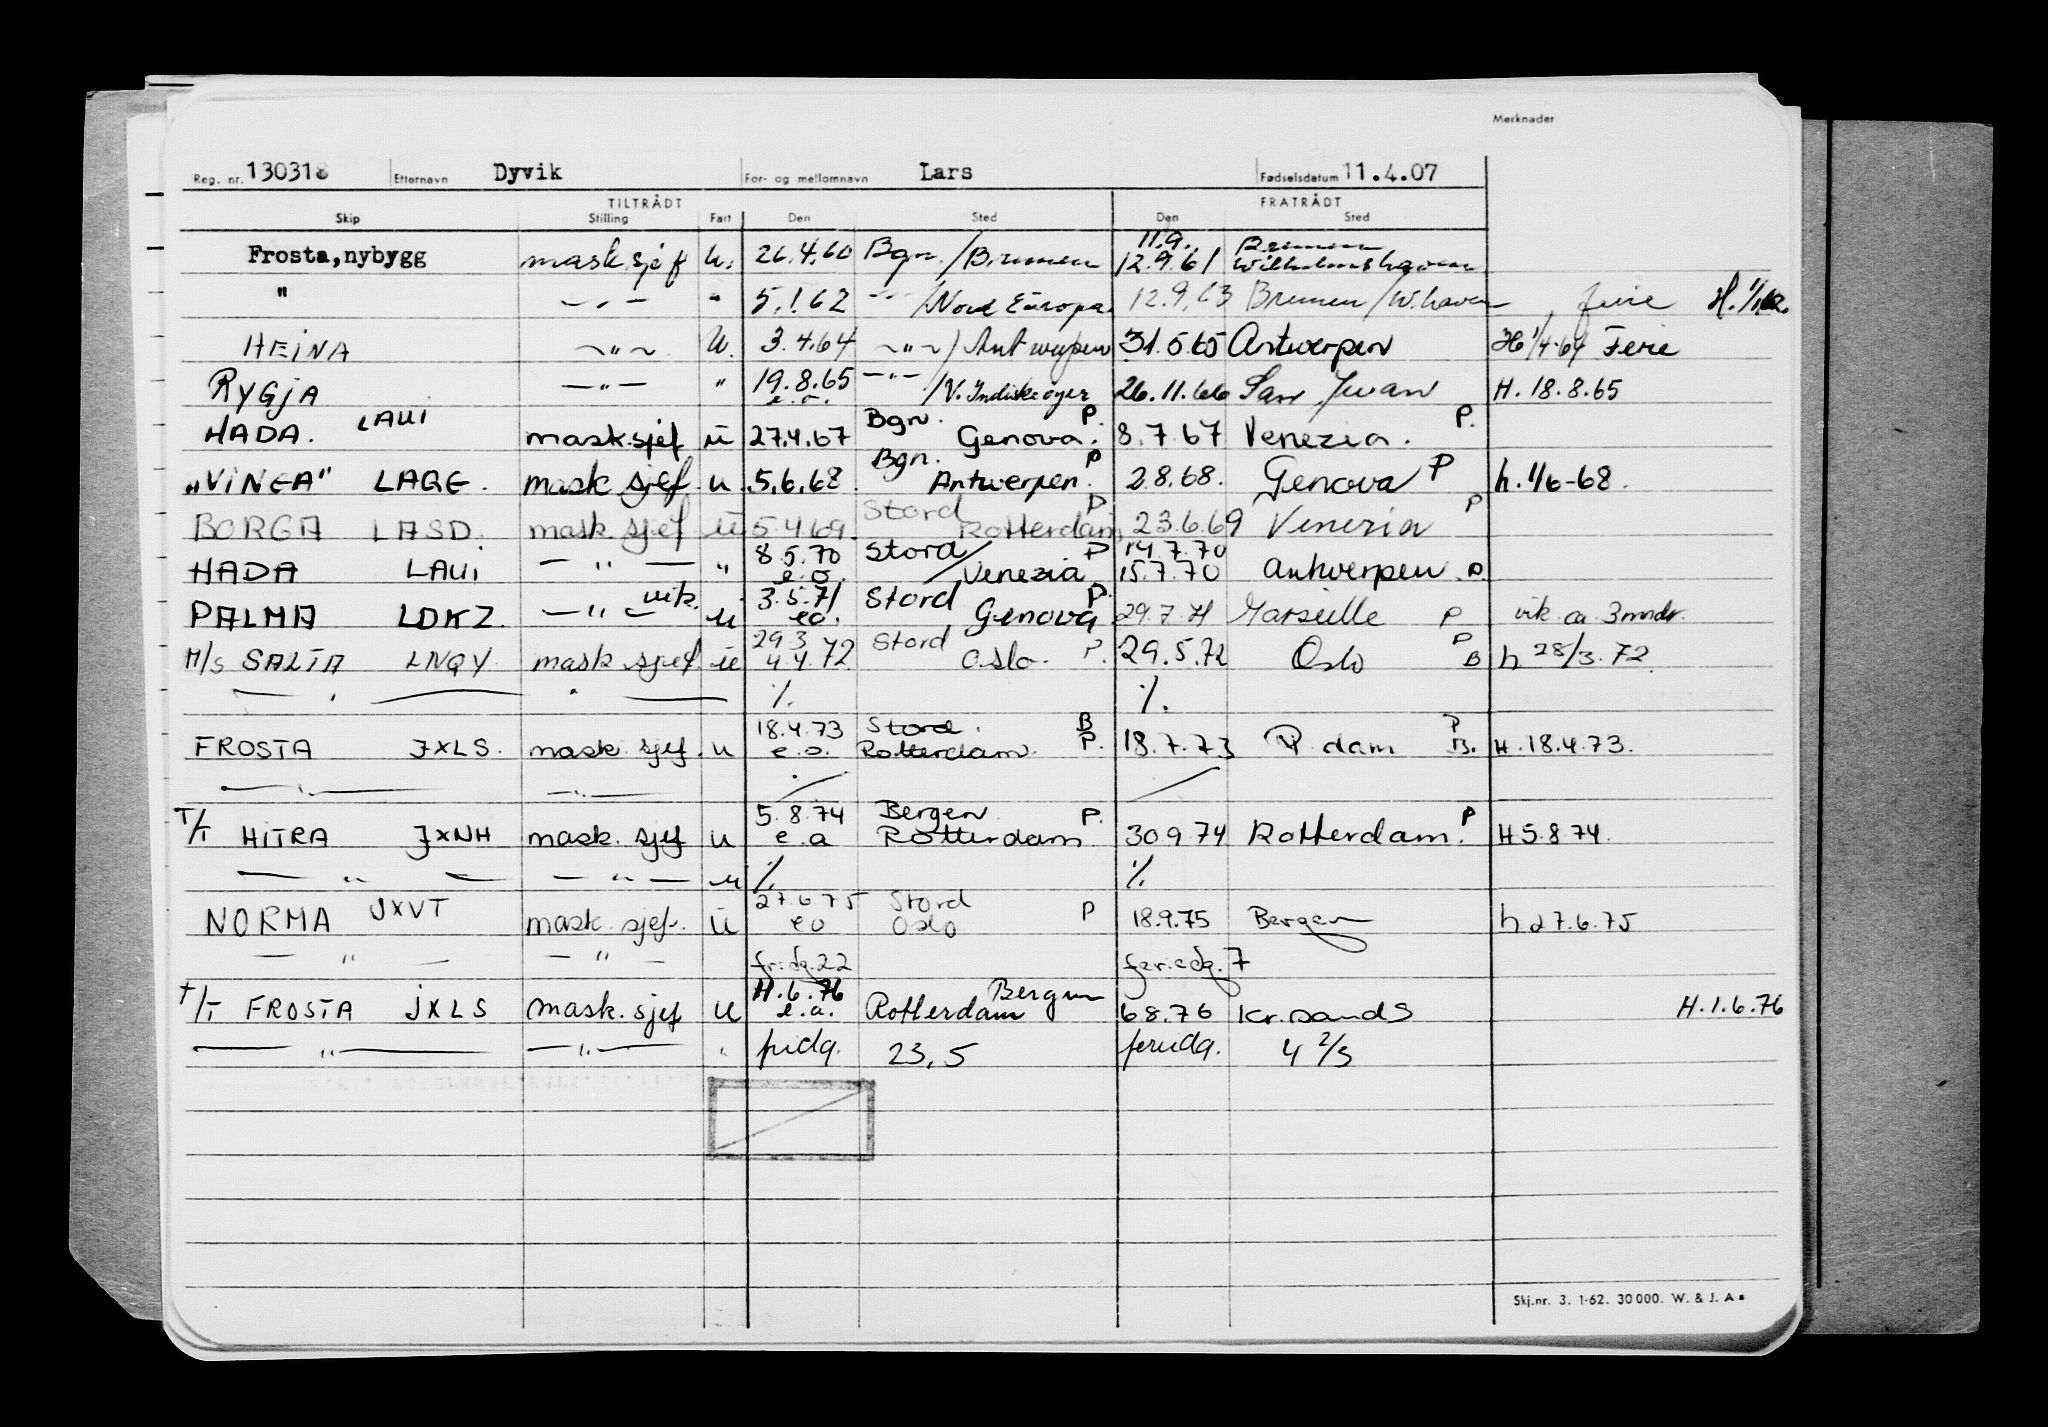 Merknader
Reg. nr. 130318 Etternavn Dyvik For- og mellomnavn Lars Fødselsdatum 11.4.07
TILTRÅDT FRATRÅDT
Skip Stilling Fart Den Sted Den Sted
11.9. Bremen
Frosta, nybygg mask.sjef u. 26.4.60 Bgn./Bremen 12.9.61 Wilhelmshaven
" —„— " 5.1.62 —"—/Nord Europa 12.9.63 Bremen/W.haven ferie H. 1/1.62.
HEINA —"— U. 3.4.64 —"—/Antwerpen 31.5.65 Antwerpen H 1/4-64 Ferie
RYGJA —"— " 19.8.65 —"—/V. Indiske øyer 26.11.66 San Juan H. 18.8.65
e.o.
HADA. LAUI mask.sjef u 27.4.67 Bgn. Genova. P. 8.7.67 Venezia. P.
„VINGA" LAGE. mask.sjef u 5.6.68. Bgn. Antwerpen. P 2.8.68. Genova P h. 1/6-68.
BORGA LASD. mask.sjef u 5.4.69. Stord Rotterdam P 23.6.69 Venezia P
8.5.70 Stord/ P 14.7.70
HADA LAUI — " — " e.o. Venezia 15.7.70 Antwerpen P.
vik. 3.5.71 Stord P.
PALMA LDKZ — " — u eo. Genova 29.7.71 Marseille P vik ca 3 mndr.
29 3 Stord P
M/S SALTA LNQY mask sjef u 4 4.72. Oslo. P. 29.5.72 Oslo B h 28/3.72.
— " — " — ./. ./.
18.4.73 Stord. B P
FROSTA JXLS. mask.sjef. u e.o. Rotterdam. P. 18.7.73 R dam B. H.18.4.73.
— " — —"— / /
5.8.74 Bergen P. P
T/T HITRA JXNH mask.sjef u e.a Rotterdam. 30.9.74 Rotterdam. H 5.8 74.
— " — — " — u ./. ./.
27.6.75 Stord
NORMA JXVT mask.sjef. u eo Oslo P 18.9.75 Bergen h 27.6.75
— " — — " — fridg. 22 feriedg. 7
6.76 Bergen
T/T FROSTA JXLS mask.sjef u e.a. Rotterdam 6.8.76 Kr.sand S H.1.6.76
— " — —"— " fridg. 23,5 feriedg. 4 2/3
Skj.nr. 3. 1-62. 30 000. W. & J. A s